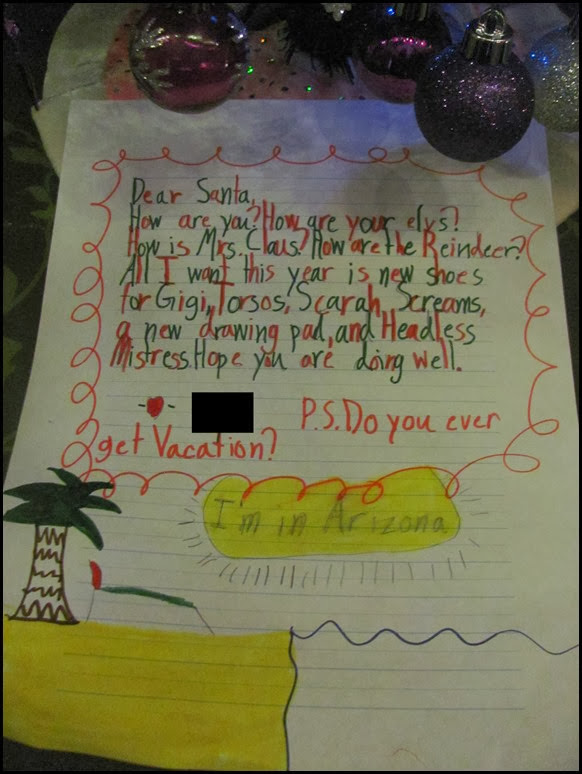 Dear Santa,
How are you? How are your elvs?
How is Mrs. Claus? How are the Reindeer?
All I want this year is new shoes
for Gigi, Torsos, Scarah Screams,
a new drawing pad, and Headless
Mistress. Hope you are doing well.
P.S. Do you ever
get Vacation?
I'm in Arizona